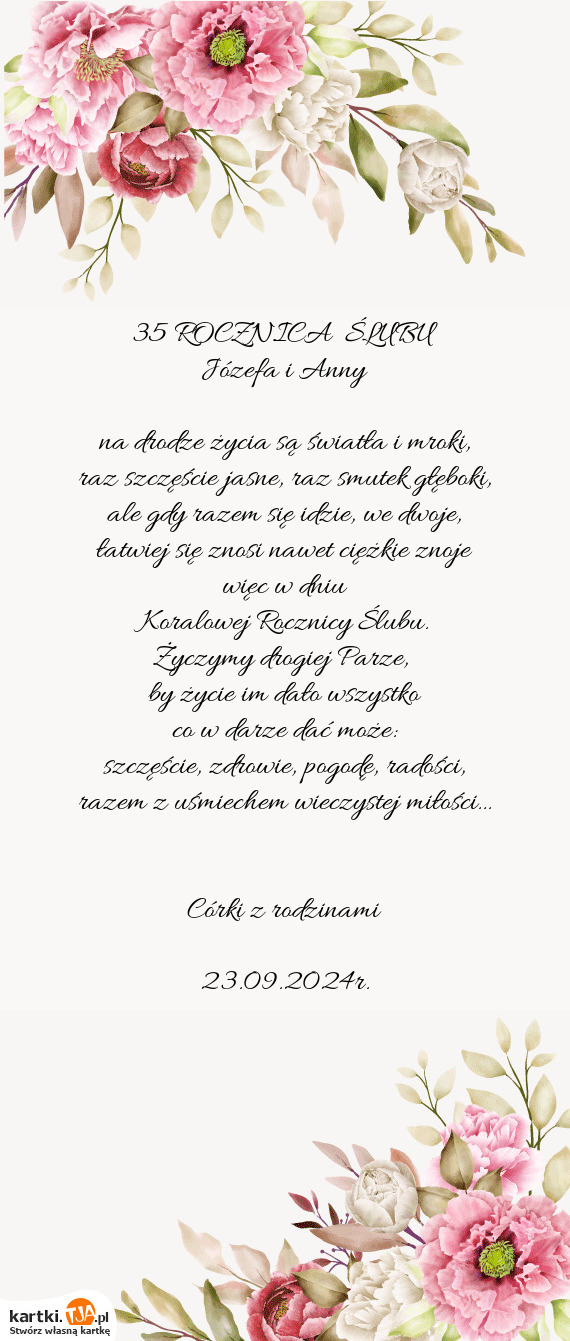 35 ROCZNICA ŚLUBU
Józefa i Anny
na drodze życia są światła i mroki,
raz szczęście jasne, raz smutek głęboki,
ale gdy razem się idzie, we dwoje,
łatwiej się znosi nawet ciężkie znoje
więc w dniu
Koralowej Rocznicy Ślubu.
Życzymy drogiej Parze,
by życie im dało wszystko
co w darze dać może:
szczęście, zdrowie, pogodę, radości,
razem z uśmiechem wieczystej miłości...
Córki z rodzinami
23.09.2024r.
kartki.TJA.pl
Stwórz własną kartkę